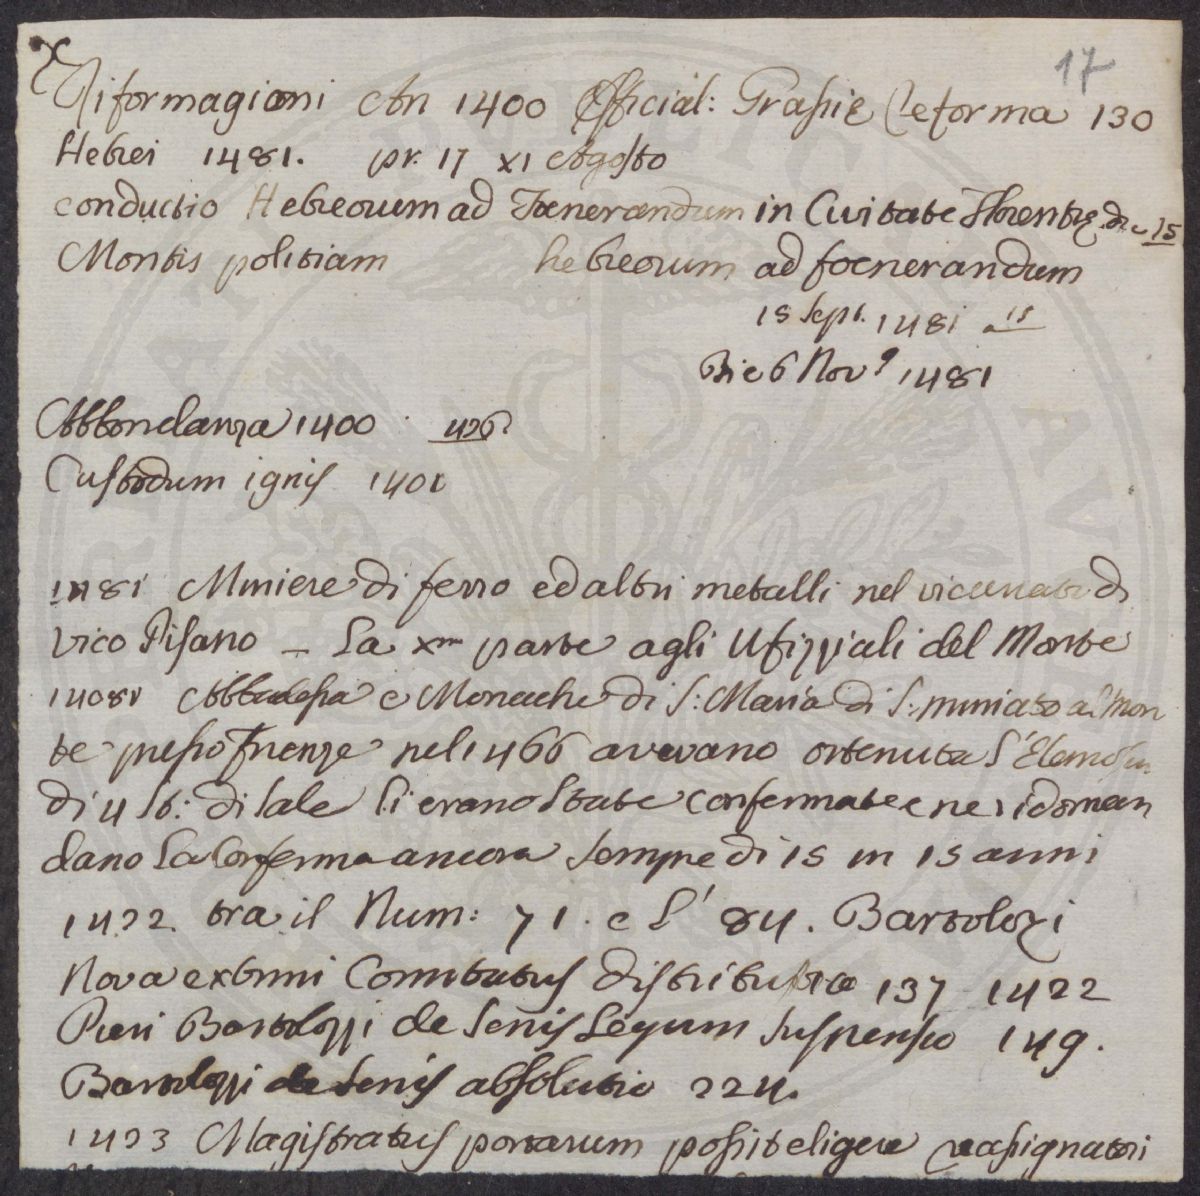 17
Riformagioni An 1400 Official: Grasiæ Reforma 130
Hebrei 1481. pr. 17 XI Agosto
conductio Hebreorum ad Foenerandum in Civitate Florentiæ 15
Montis politiam hebreorum ad foenerandum
15 Sept. 1481 15
Die 6 Nov. 1481
Abbondanza 1400 426
Custodum ignis 1401
1481 Miniere di ferro ed altri metalli nel vicariato di
Vico Pisano - La Xma parte agli Ufizziali del Monte
Abbadessa e Monache di S: Maria di S: miniato al Mon
te presso Firenze nel 1466 avevano ottenuta l'Elemosin
di 4 st: di sale li erano state confermate e ne ridoman
dano la Conferma ancora sempre di 15 in 15 anni
1422 tra il Num: 71. e l' 84. Bartolozi
Nova extimi Comitatus distributio 137 1422
Pieri Bartolozzi de Senis Legum suspensio 149.
Bartolozzi de Senis absolutio 224.
1423 Magistratus portarum possit eligere rassignatori